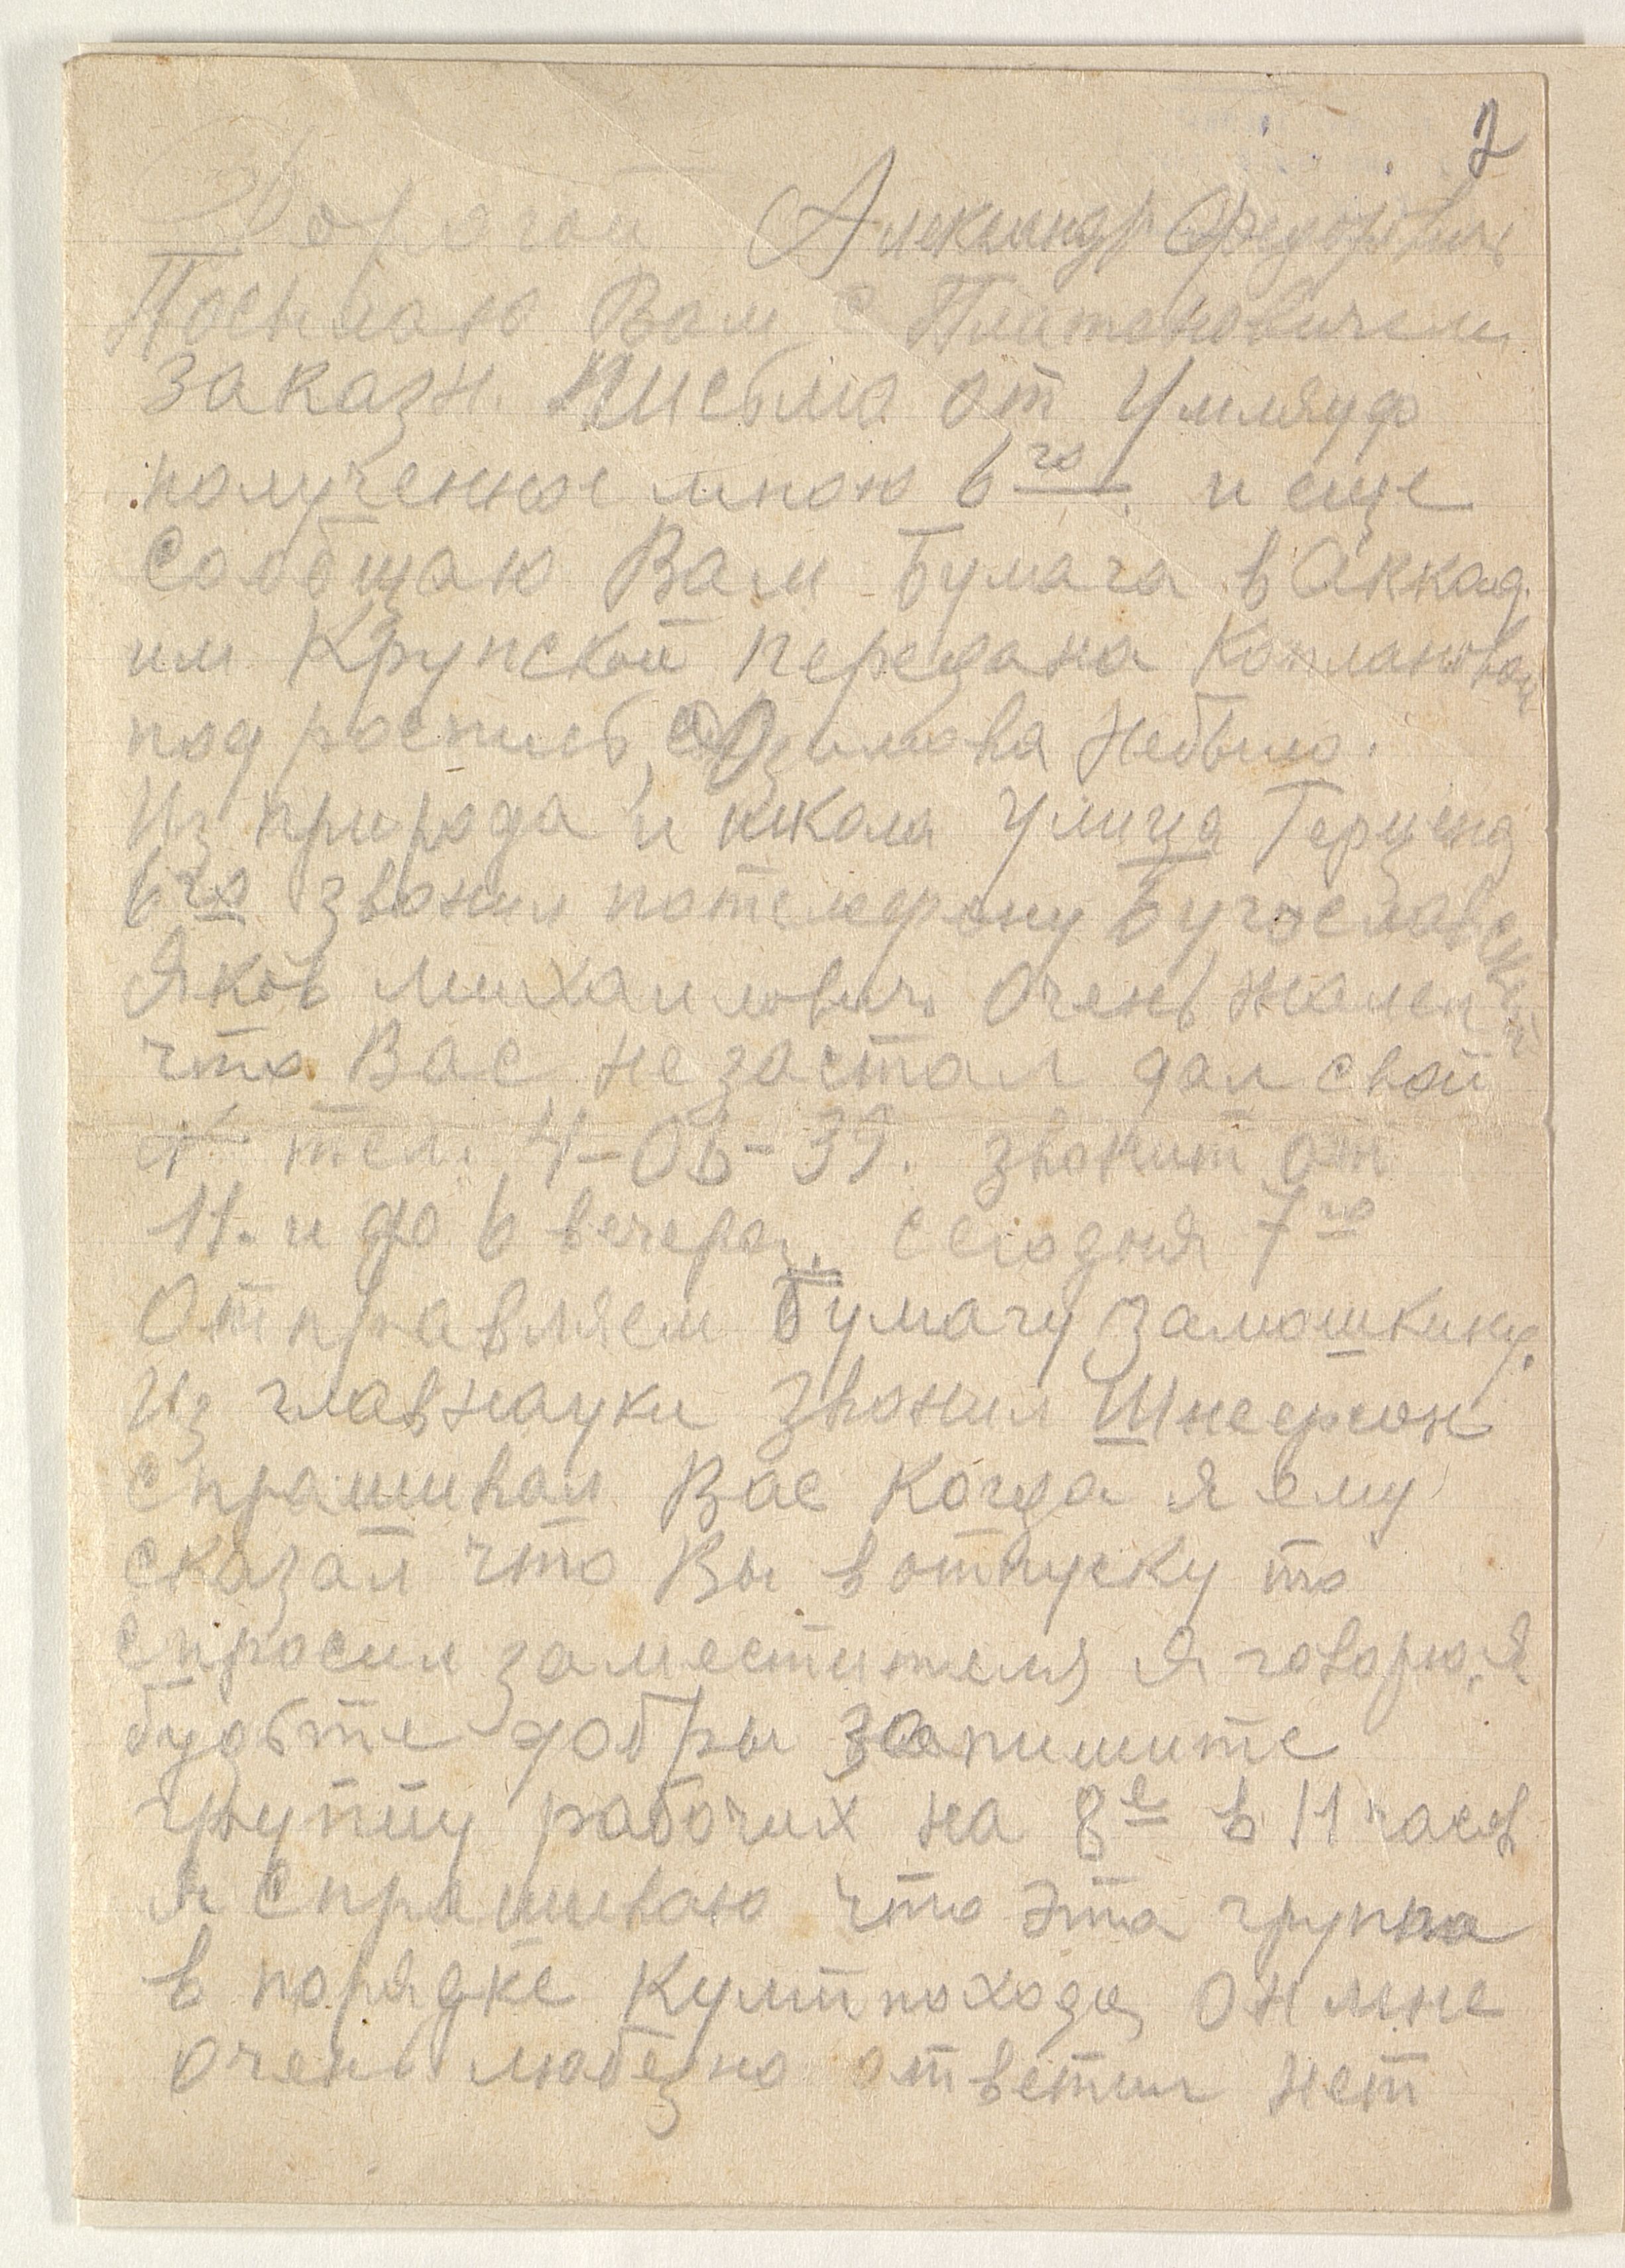 2
Дорогой Александр Федорович
Посылаю Вам с Платоновичем
заказн. письмо от Умляуф
полученное мною 6го. и еще
сообщаю Вам бумага в Аккад.
им Крупской передана Каплановой
под роспись, Озимова небыло.
Из природа и школа Улица Герцена
6го звонил потелефону Бугославский
Яков Михаилович очень жалел
что Вас незастал дал свой
№ тел. 4-06-39. звонит от
11. и до 6 вечера. сегодня 7го
Отправляем бумагу Замошкину.
Из главнауки звонил Шнеерсон
спрашивал Вас когда я ему
сказал что Вы в отпуску то
спросил заместителя я говорю, я
будьте добры запишите
группу рабочих на 8е в 11 часов
я спрашиваю что эта группа
в порядке культпохода он мне
очень любезно ответил нет